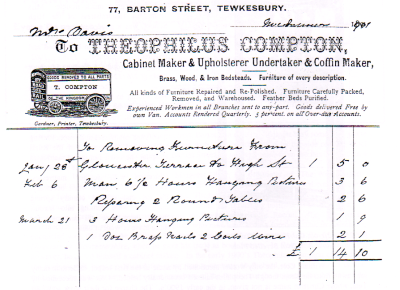 77, BARTON STREET, TEWKESBURY.
Midsummer 1901
Mrs Davis
To THEOPHILUS COMPTON,
Cabinet Maker & Upholsterer Undertaker & Coffin Maker,
Brass, Wood, & Iron Bedsteads. Furniture of every description.
GOODS REMOVED TO ALL PARTS
T. COMPTON
All kinds of Furniture Repaired and Re-Polished. Furniture Carefully Packed,
Removed, and Warehoused. Feather Beds Purified.
Experienced Workmen in all Branches sent to any part. Goods delivered Free by
own Van. Accounts Rendered Quarterly. 5 percent. on all Over-due Accounts.
Gardner, Printer, Tewkesbury.
To Removing Furniture From
Jany 28th Gloucester Terrace to High St 1 5 0
Feb 6 Man 6½ Hours Hanging Pictures 3 6
Reparing 2 Round Tables 2 6
March 21 3 Hours Hanging Pictures 1 9
1 Doz Brass Nails 2 Coils Wire 2 1
£ 1 14 10